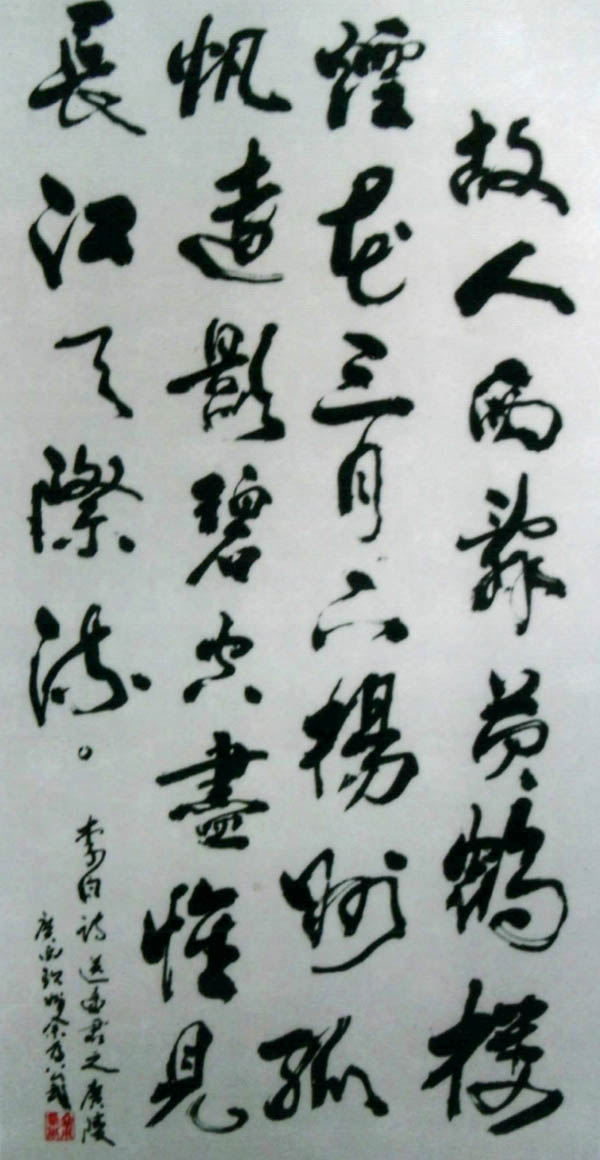 故人西辭黃鶴樓
煙花三月下揚州孤
帆遠影碧空盡惟見
長江天際流。
李白詩送孟君之廣陵
廣西欽州余